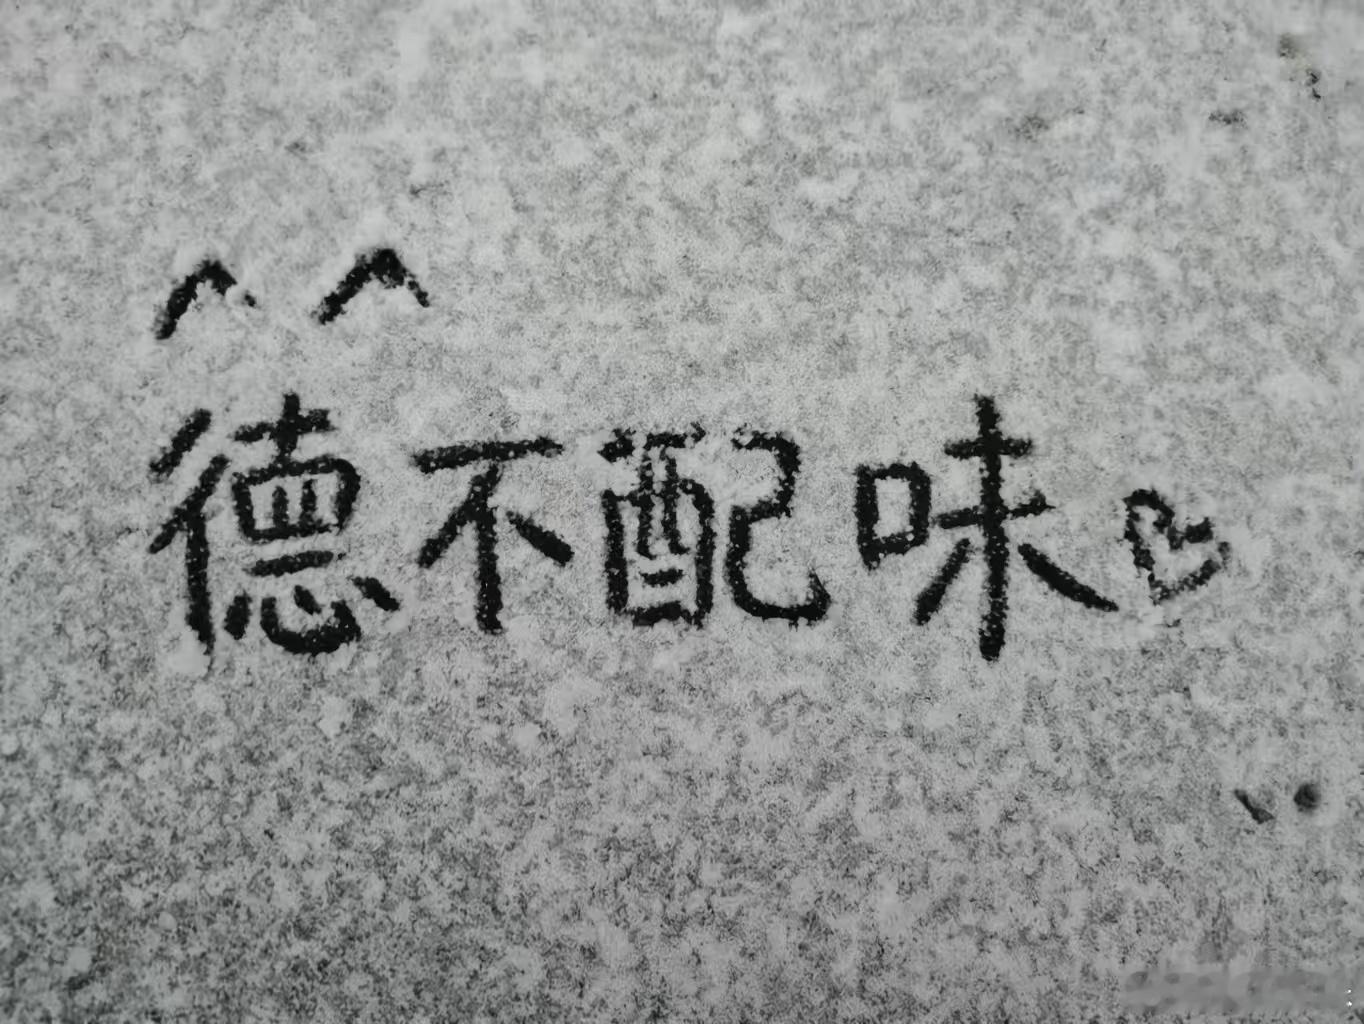 ^ ^
德不配味